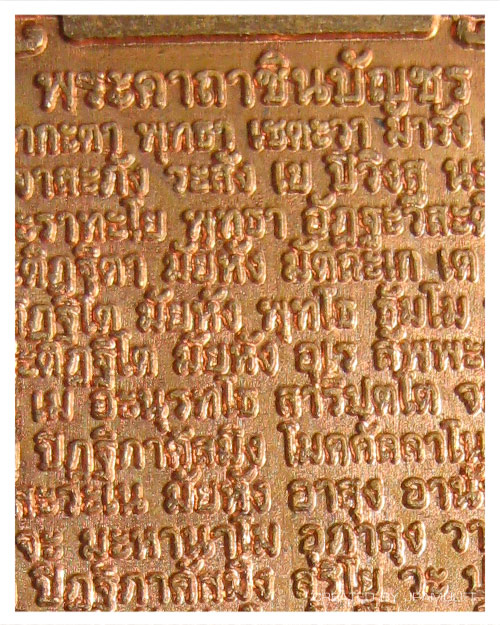 พระคาถาชินบัญชร
กะตา พุทธา เชตะวา มารัง
สะภัง ระสัง เย ปิวิงสุ นะ
ะราทะโย พุทธา อัฏฐะวีสะติ
ติฏฐิตา มัยหัง มัตถะเก เต
ฏฐิโต มัยหัง พุทโธ ธัมโม
ะติฏฐิโต มัยหัง อุเร สัพพะ
เม อะนุรุทโธ สารีปุตโต จะ
ปิฏฐิภาคัสมิง โมคคัลลาโน
สะวะเน มัยหัง อาสุง อานั
จะ มะหานาโม อุภาสุง วา
ปิฏฐิภาคัสมิง สุริโย วะ ป
CREATED BY